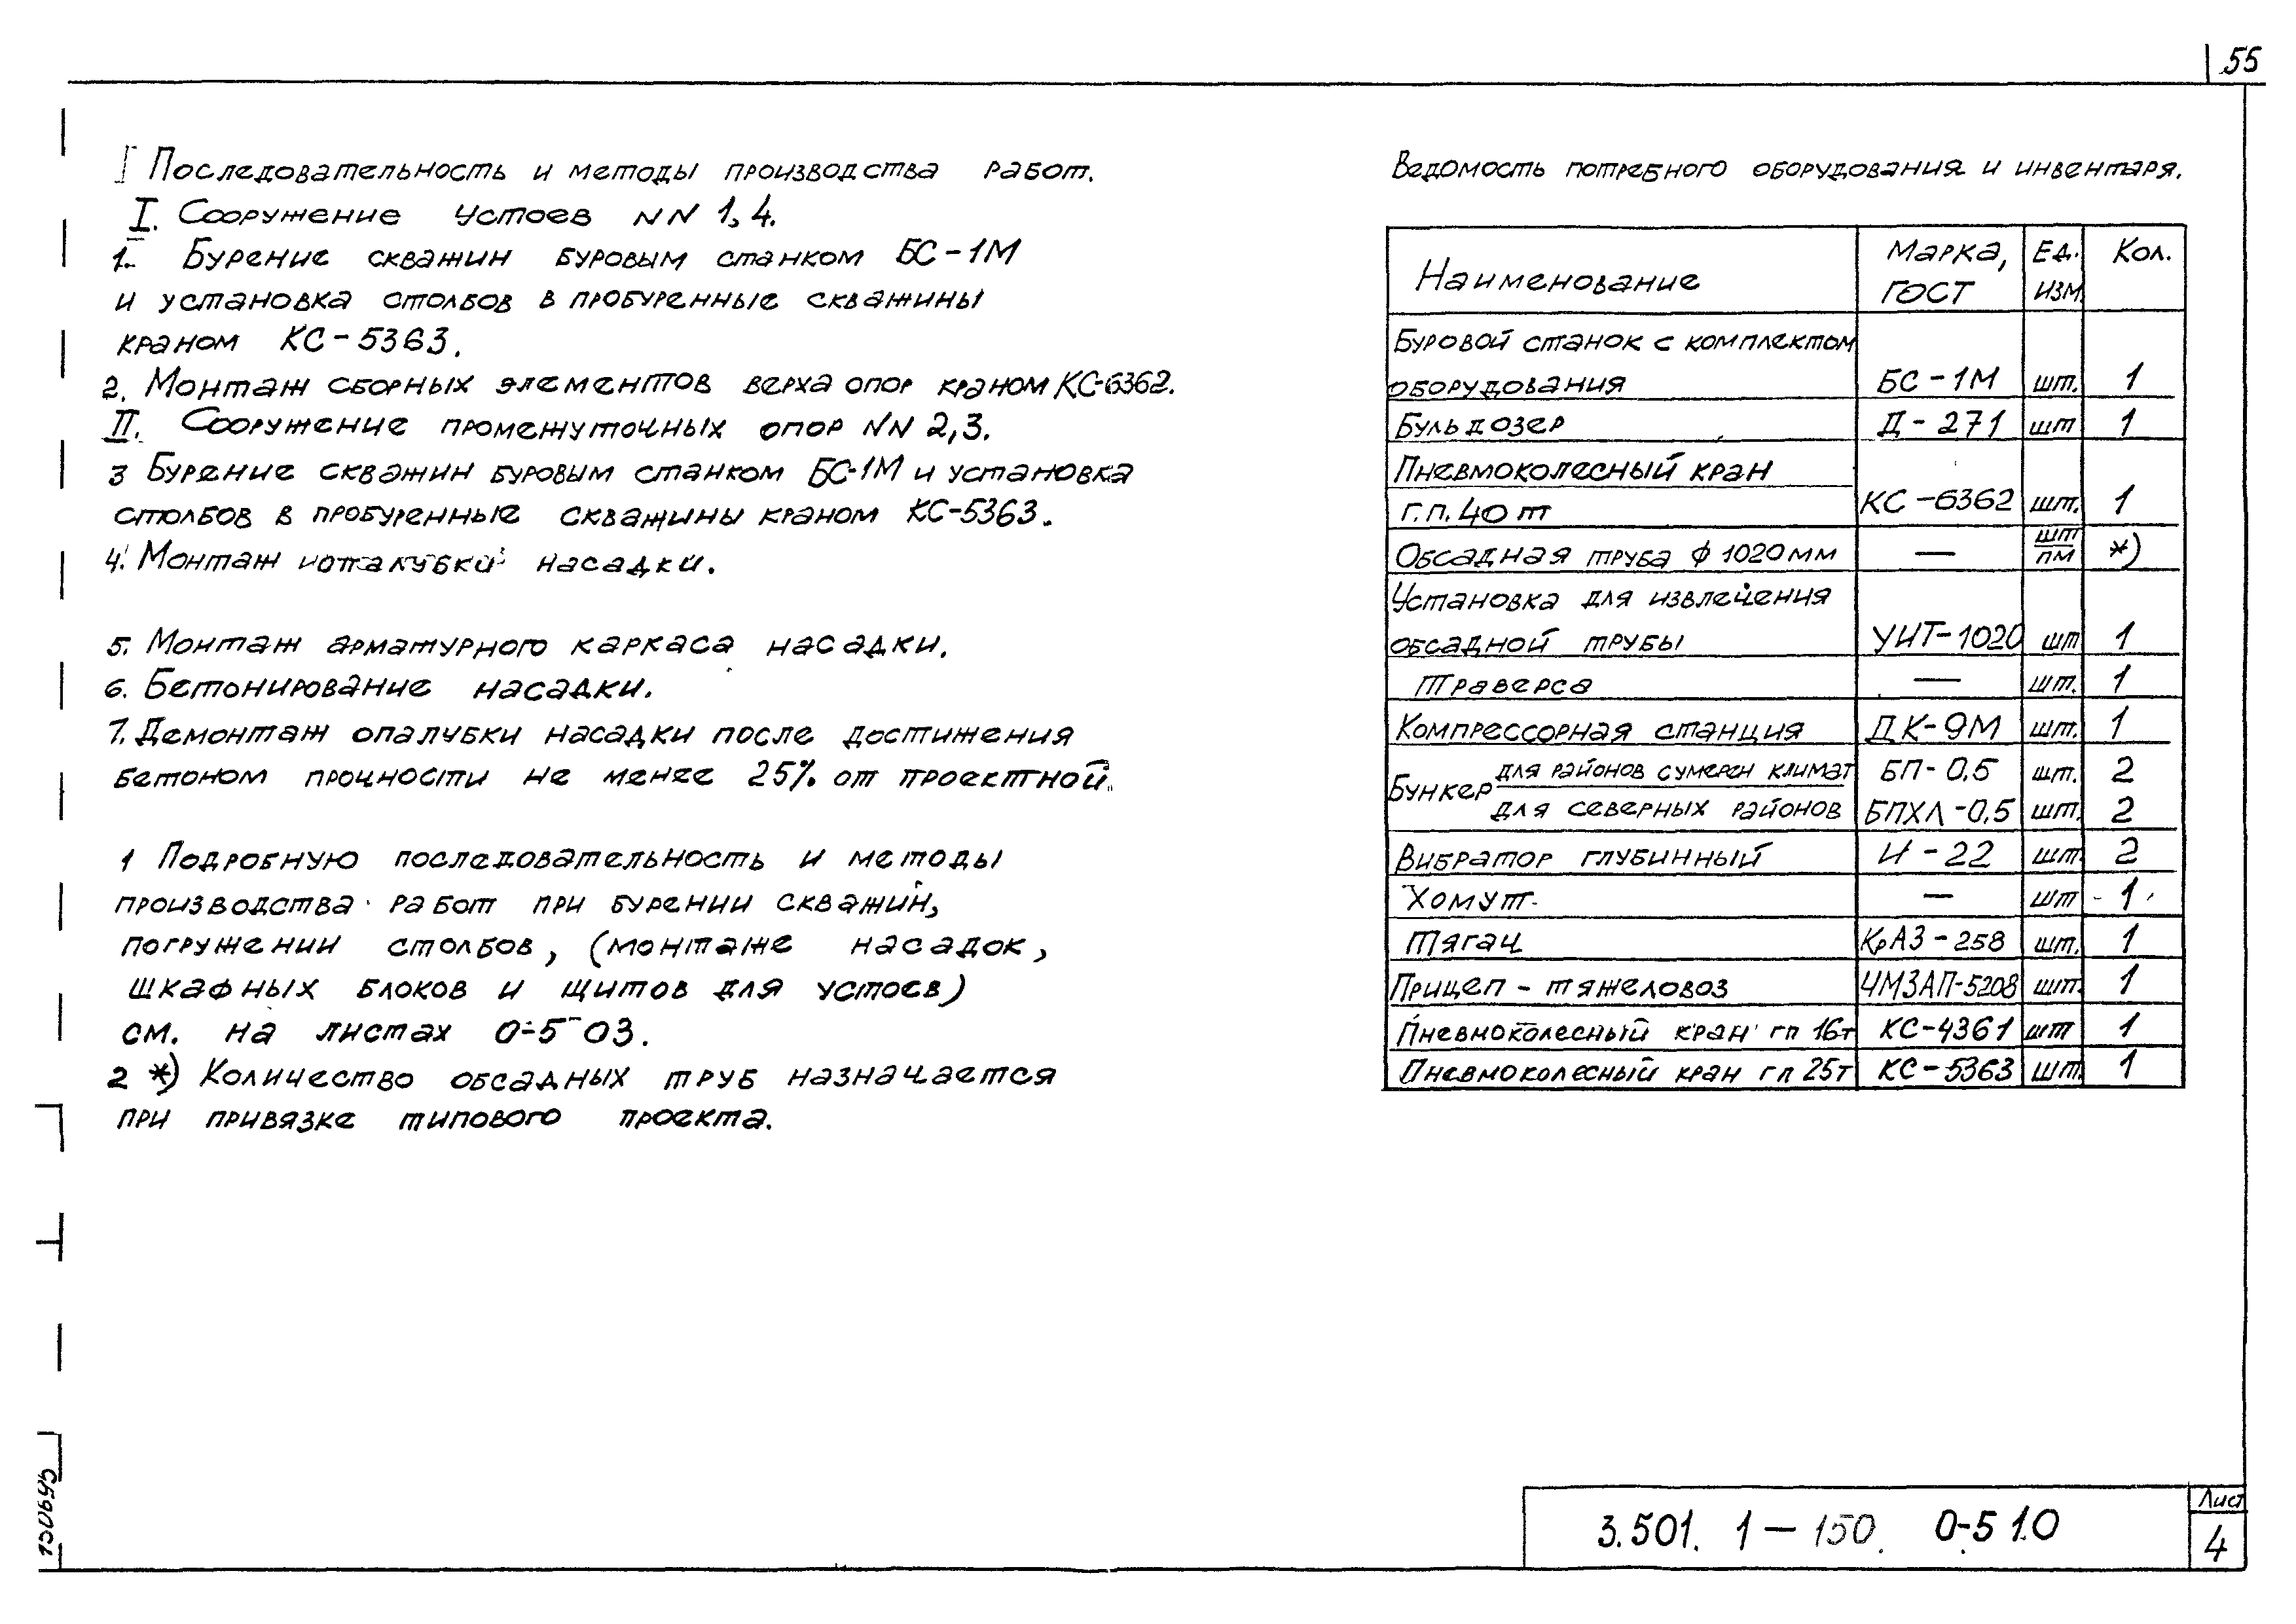 55
I Последовательность и методы производства работ.
I. Сооружение устоев NN 1,4.
1. Бурение скважин буровым станком БС-1М
и установка столбов в пробуренные скважины
краном КС-5363.
2. Монтаж сборных элементов верха опор краном КС-6362.
II. Сооружение промежуточных опор NN 2,3.
3 Бурение скважин буровым станком БС-1М и установка
столбов в пробуренные скважины краном КС-5363.
4. Монтаж опалубки насадки.
5. Монтаж арматурного каркаса насадки.
6. Бетонирование насадки.
7. Демонтаж опалубки насадки после достижения
бетоном прочности не менее 25% от проектной.
1 Подробную последовательность и методы
производства работ при бурении скважин,
погружении столбов, (монтаже насадок,
шкафных блоков и щитов для устоев)
см. на листах 0-5 03.
2 *) Количество обсадных труб назначается
при привязке типового проекта.
Ведомость потребного оборудования и инвентаря.
Наименование Марка, ГОСТ Ед. изм Кол.
Буровой станок с комплектом
оборудования БС-1М шт. 1
Бульдозер Д-271 шт 1
Пневмоколесный кран
г.п. 40 т КС-6362 шт. 1
Обсадная труба ф 1020 мм — шт/пм *)
Установка для извлечения
обсадной трубы УИТ-1020 шт 1
Траверса — шт. 1
Компрессорная станция ДК-9М шт. 1
Бункер для районов с умерен климат БП-0,5 шт. 2
для северных районов БПХЛ-0,5 шт. 2
Вибратор глубинный И-22 шт 2
Хомут — шт 1
Тягач КрАЗ-258 шт. 1
Прицеп-тяжеловоз ЧМЗАП-5208 шт. 1
Пневмоколесный кран гп 16т КС-4361 шт 1
Пневмоколесный кран гп 25т КС-5363 шт. 1
3.501. 1-150. 0-5 1.0
Лист
4